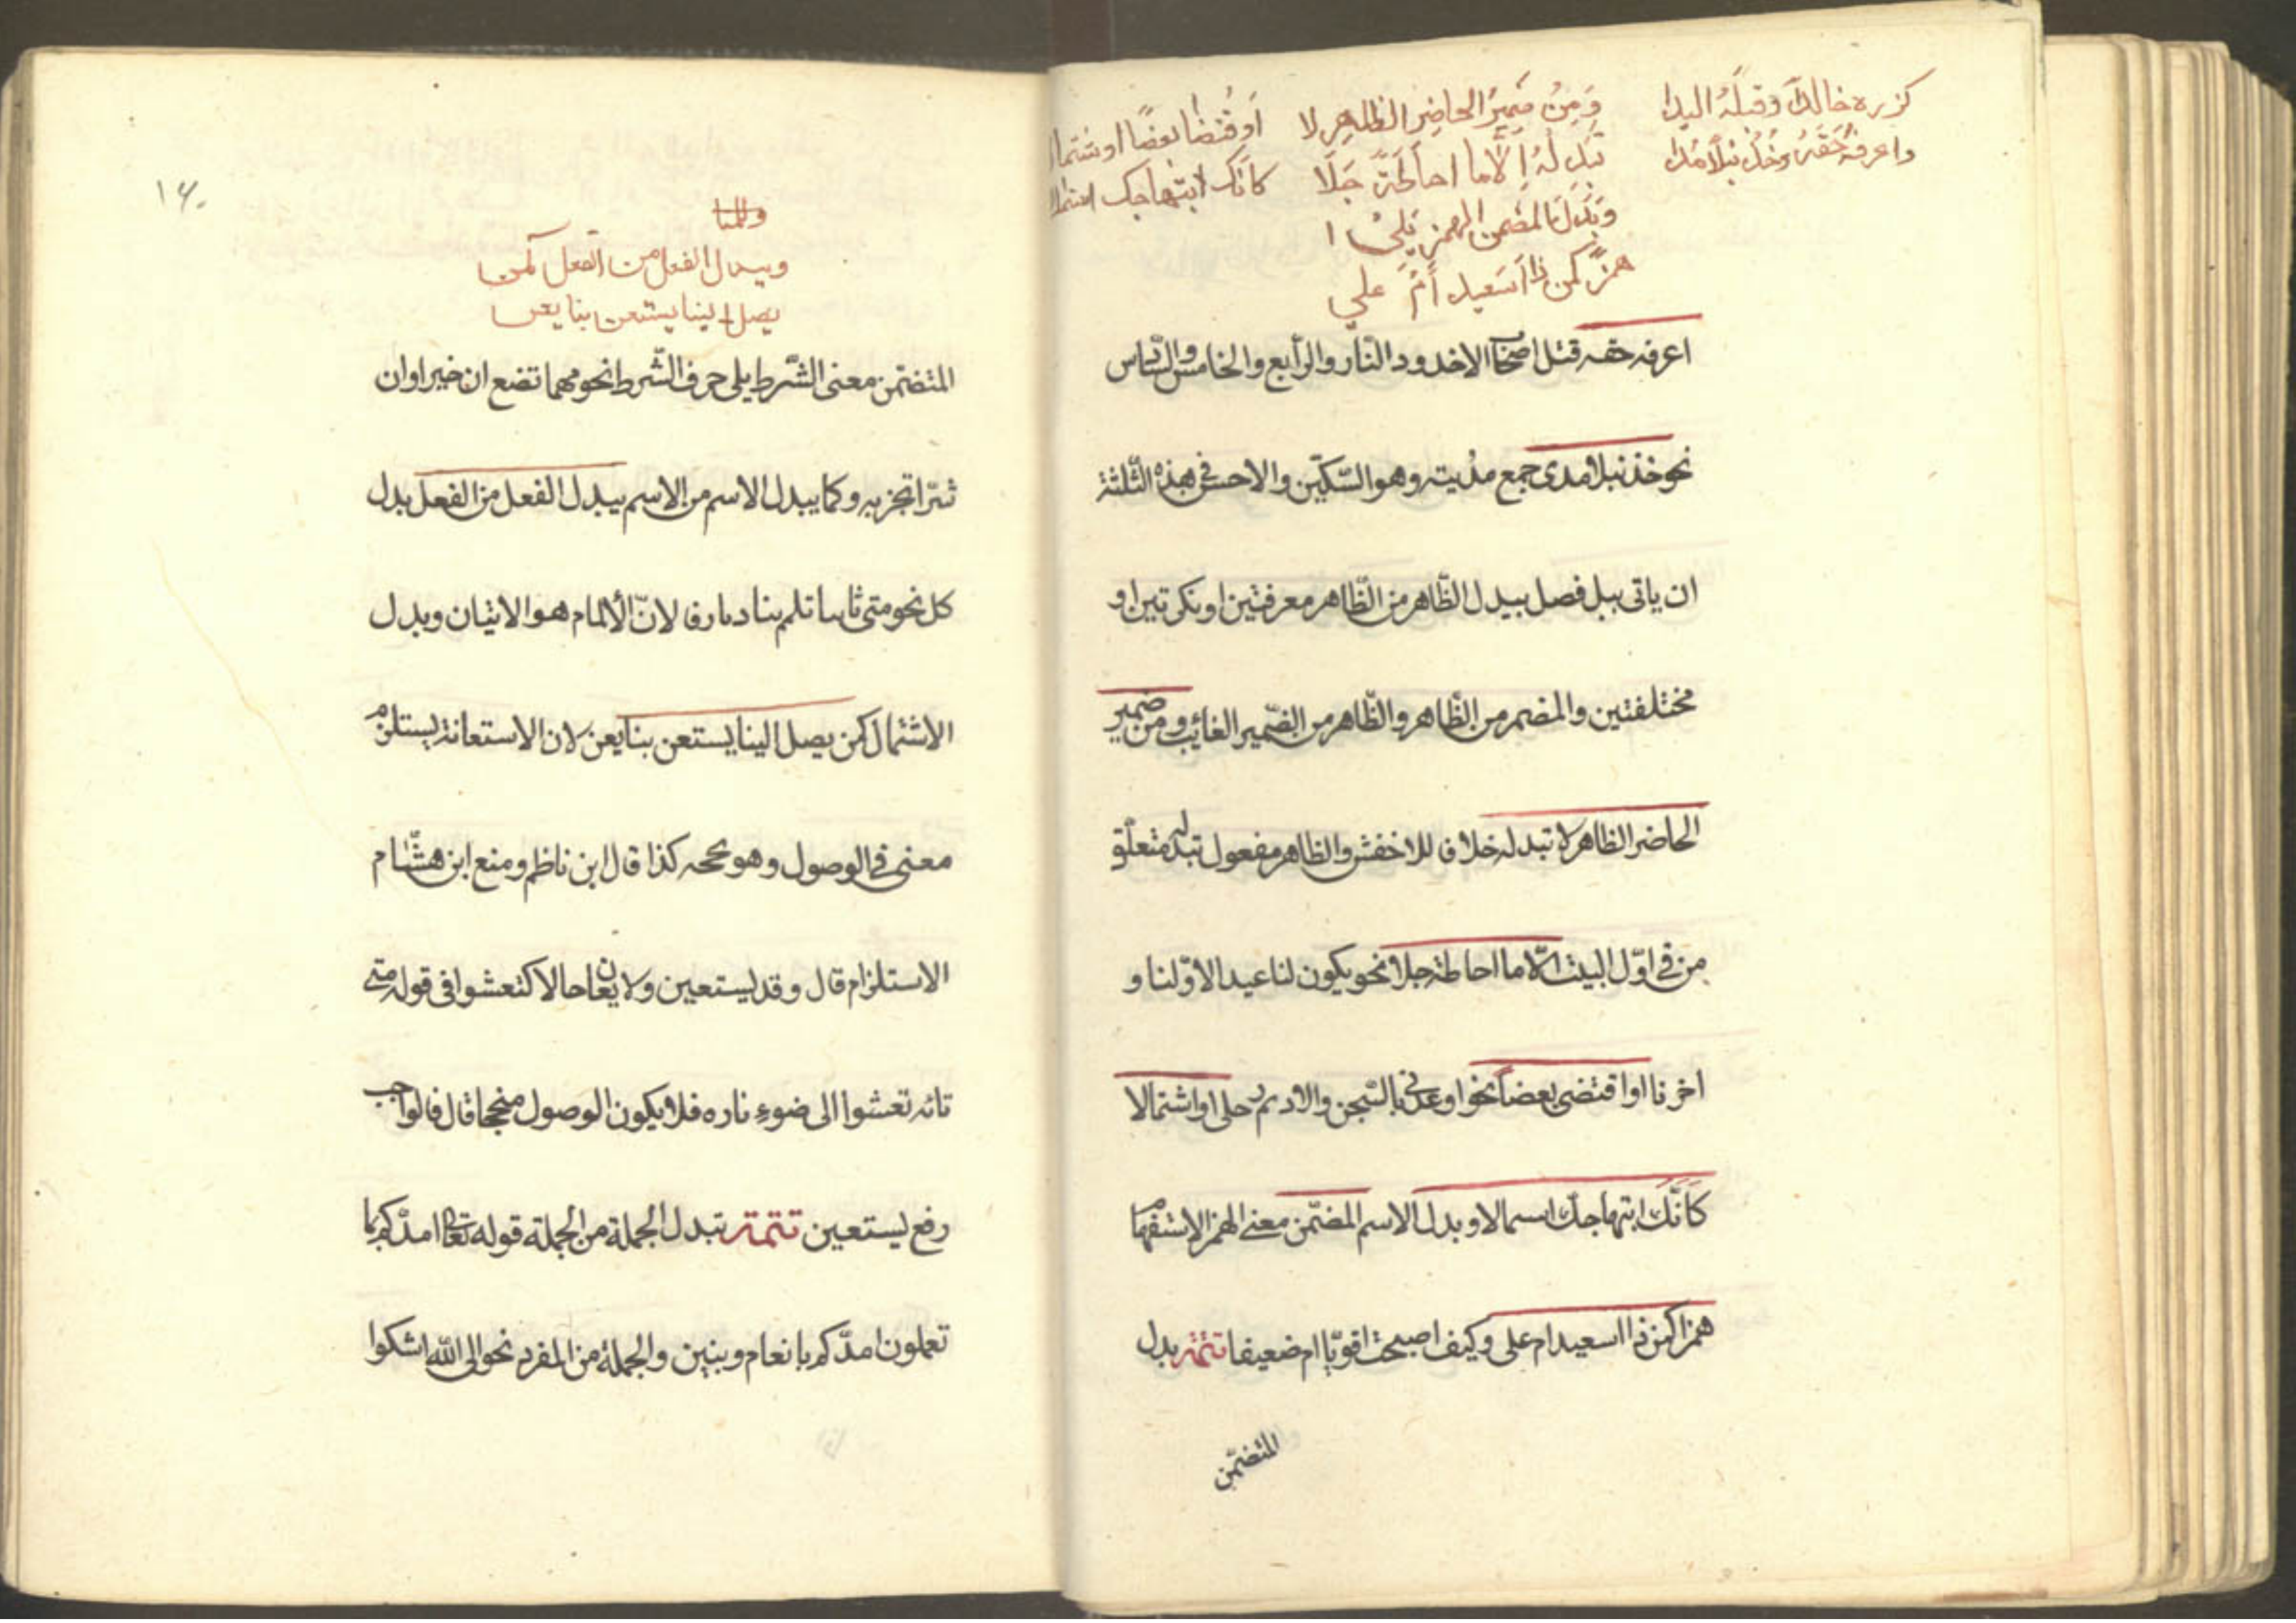 كزره خالدا وقبله اليدا
واعرفه حقه وخذ نبلا مدا
ومن ضمير الحاضر الظاهر لا
تبدله الا ما احاطة جلا
او قتضا بعضا او شتمالا
كانك ابتهاجك استمالا
وبدل المضمن الهمز يلي ا
همزا كمن ذا اسعيد أم علي
اعرفه حقه قتل اصحاب الاخدود النّار والرّابع والخامس والسّادس
نحو خذ نبلا مدى جمع مدية وهو السّكّين والاحسن في هذه الثّلثة
ان ياتى ببل فصل يبدل الظّاهر من الظّاهر معرفتين او نكرتين او
مختلفتين والمضمر من الظّاهر والظّاهر من الضّمير الغائب ومن ضمير
الحاضر الظاهر لا تبدله خلافا للاخفش والظاهر مفعول تبدله متعلّق
من في اوّل البيت الّا ما احاطة جلا نحو يكون لنا عيدا لاوّلنا و
اخرنا او اقتضى بعضا نحو اوعدنى بالسّجن والاداهم رجلى او اشتمالا
كانّك ابتهاجك استمالا وبدل الاسم المضمّن معنى الهمز الاستفهام
همزا كمن ذا اسعيد ام على وكيف اصبحت اقويّا ام ضعيفا تتمة بدل
المتضمّن
١٤٠
ويبدل الفعل من الفعل كمن
يصل الينا يستعن بنا يعن
المتضمّن معنى الشّرط يلى حرف الشّرط نحو مهما تضع ان خيرا وان
شرّا تجز به وكما يبدل الاسم من الاسم يبدل الفعل من الفعل بدل
كل نحو متى تاتنا تلمم بنا فى ديارنا لانّ الألمام هو الاتيان وبدل
الاشتمال كمن يصل الينا يستعن بنا يعن لان الاستعانة يستلزم
معنى فى الوصول وهو نجحه كذا قال ابن ناظم ومنع ابن هشّام
الاستلزام قال وقد يستعين ولا يعان حالا كتعشوا فى قوله متى
تاته تعشوا الى ضوء ناره فلا يكون الوصول منجحا قال فالواجب
رفع يستعين تتمة تبدل الجملة من الجملة قوله تعالى امدّكم بما
تعلمون امدّكم بانعام وبنين والجملة من المفرد نحو الى الله اشكوا